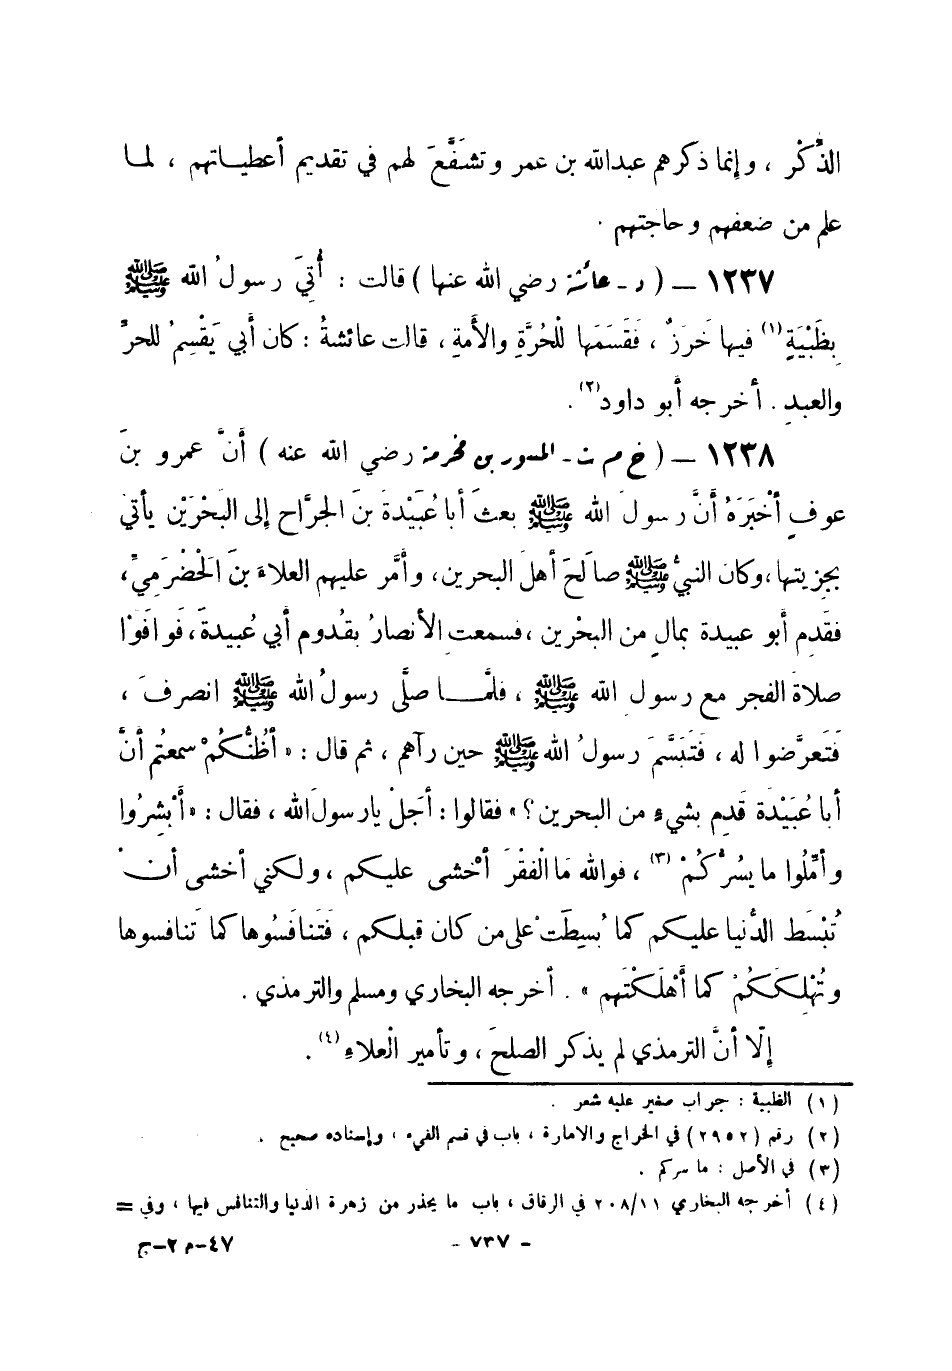 الذِّكْر ، وإنما ذكرهم عبدالله بن عمر وتشفَّعَ لهم في تقديم أعطياتهم ، لما
علم من ضعفهم وحاجتهم .
١٢٣٧ – ( د - عائشة رضي الله عنها ) قالت : أُتيَ رسولُ الله ﷺ
بِظَبْيَةٍ(١) فيها خَرَزٌ ، فَقَسَمَها لِلْحُرَّةِ والأَمةِ ، قالت عائشةُ : كان أبي يَقْسِمُ للحرِّ
والعبدِ . أخرجه أبو داود(٢) .
١٢٣٨ – ( خ م ت - المسور بن مخرمة رضي الله عنه ) أنَّ عمرو بنَ
عوفٍ أخْبَرَهُ أنَّ رسولَ الله ﷺ بعثَ أبا عُبَيْدةَ بنَ الجرَّاح إلى البَحْرَيْن يأتي
بجزيتها ، وكان النبيُّ ﷺ صالَحَ أهلَ البحرين، وأمَّر عليهم العلاءَ بنَ الْحَضْرَمِيِّ،
فقَدِم أبو عبيدة بمالٍ من البحْرين ، فسمعتِ الأنصارُ بقُدوم أبي عُبيدةَ ، فَوافَوْا
صلاةَ الفجر مع رسول الله ﷺ ، فلمَّا صلَّى رسولُ الله ﷺ انصرفَ ،
فَتَعرَّضوا له ، فَتَبَسَّمَ رسولُ الله ﷺ حين رآهم ، ثم قال : « أظُنُّكُمْ سمعتُم أنَّ
أبا عُبَيْدَة قَدِم بشيءٍ من البحرين ؟ » فقالوا : أجَلْ يا رسولَ الله ، فقال : « أبْشِرُوا
وأمِّلُوا ما يسُرُّكُمْ (٣) ، فوالله مَا الْفَقْرَ أخْشى عليكم ، ولكني أخشى أنْ
تُبْسَط الدُّنيا عليكم كما بُسِطَتْ على من كان قبلكم ، فَتَنافَسُوها كما تَنافسوها
وتُهْلِكَكُمْ كما أهْلَكَتْهم » . أخرجه البخاري ومسلم والترمذي .
إلّا أنَّ الترمذي لم يذكر الصلحَ ، وتأمير الْعلاءِ(٤) .
(١) الظبية : جراب صغير عليه شعر .
(٢) رقم (٢٩٥٢) في الخراج والامارة ، باب في قسم الفيء ، وإسناده صحيح .
(٣) في الأصل : ما سركم .
(٤) أخرجه البخاري ٢٠٨/١١ في الرقاق ، باب ما يحذر من زهرة الدنيا والتنافس فيها ، وفي =
- ٧٣٧ -
٤٧-م ٢-ج